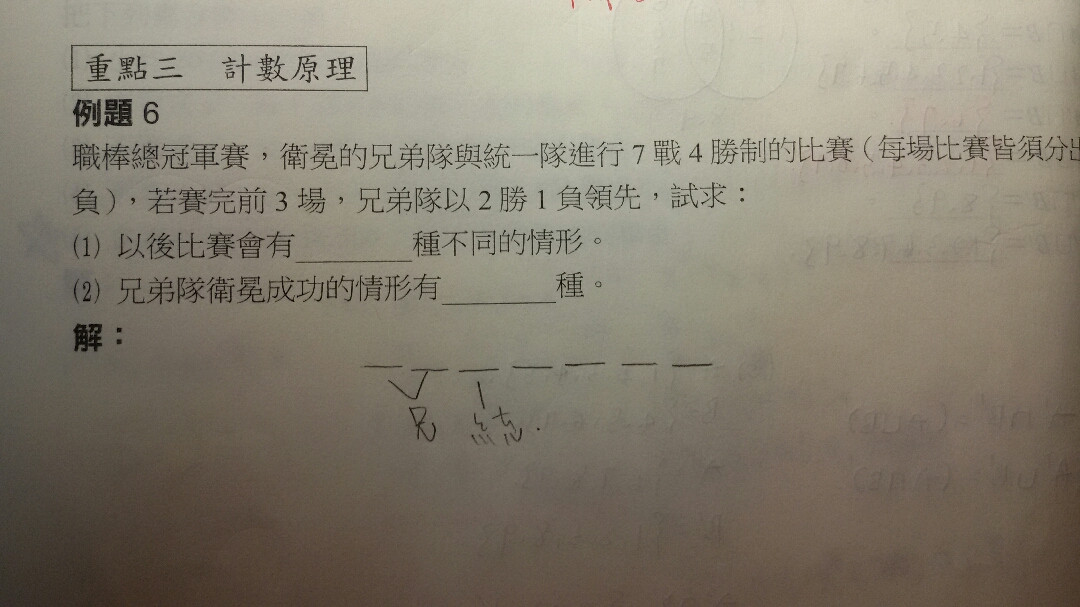 重點三 計數原理
例題 6
職棒總冠軍賽，衛冕的兄弟隊與統一隊進行 7 戰 4 勝制的比賽（每場比賽皆須分出
負），若賽完前 3 場，兄弟隊以 2 勝 1 負領先，試求：
⑴ 以後比賽會有________種不同的情形。
⑵ 兄弟隊衛冕成功的情形有________種。
解：
兄 統.